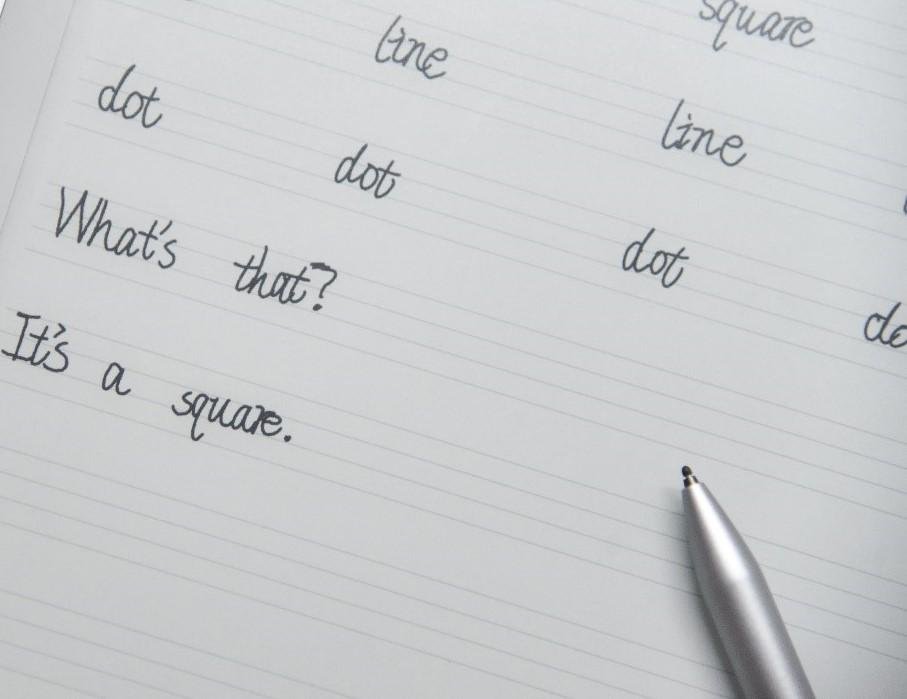 square
line line
dot dot dot do
What's that?
It's a square.